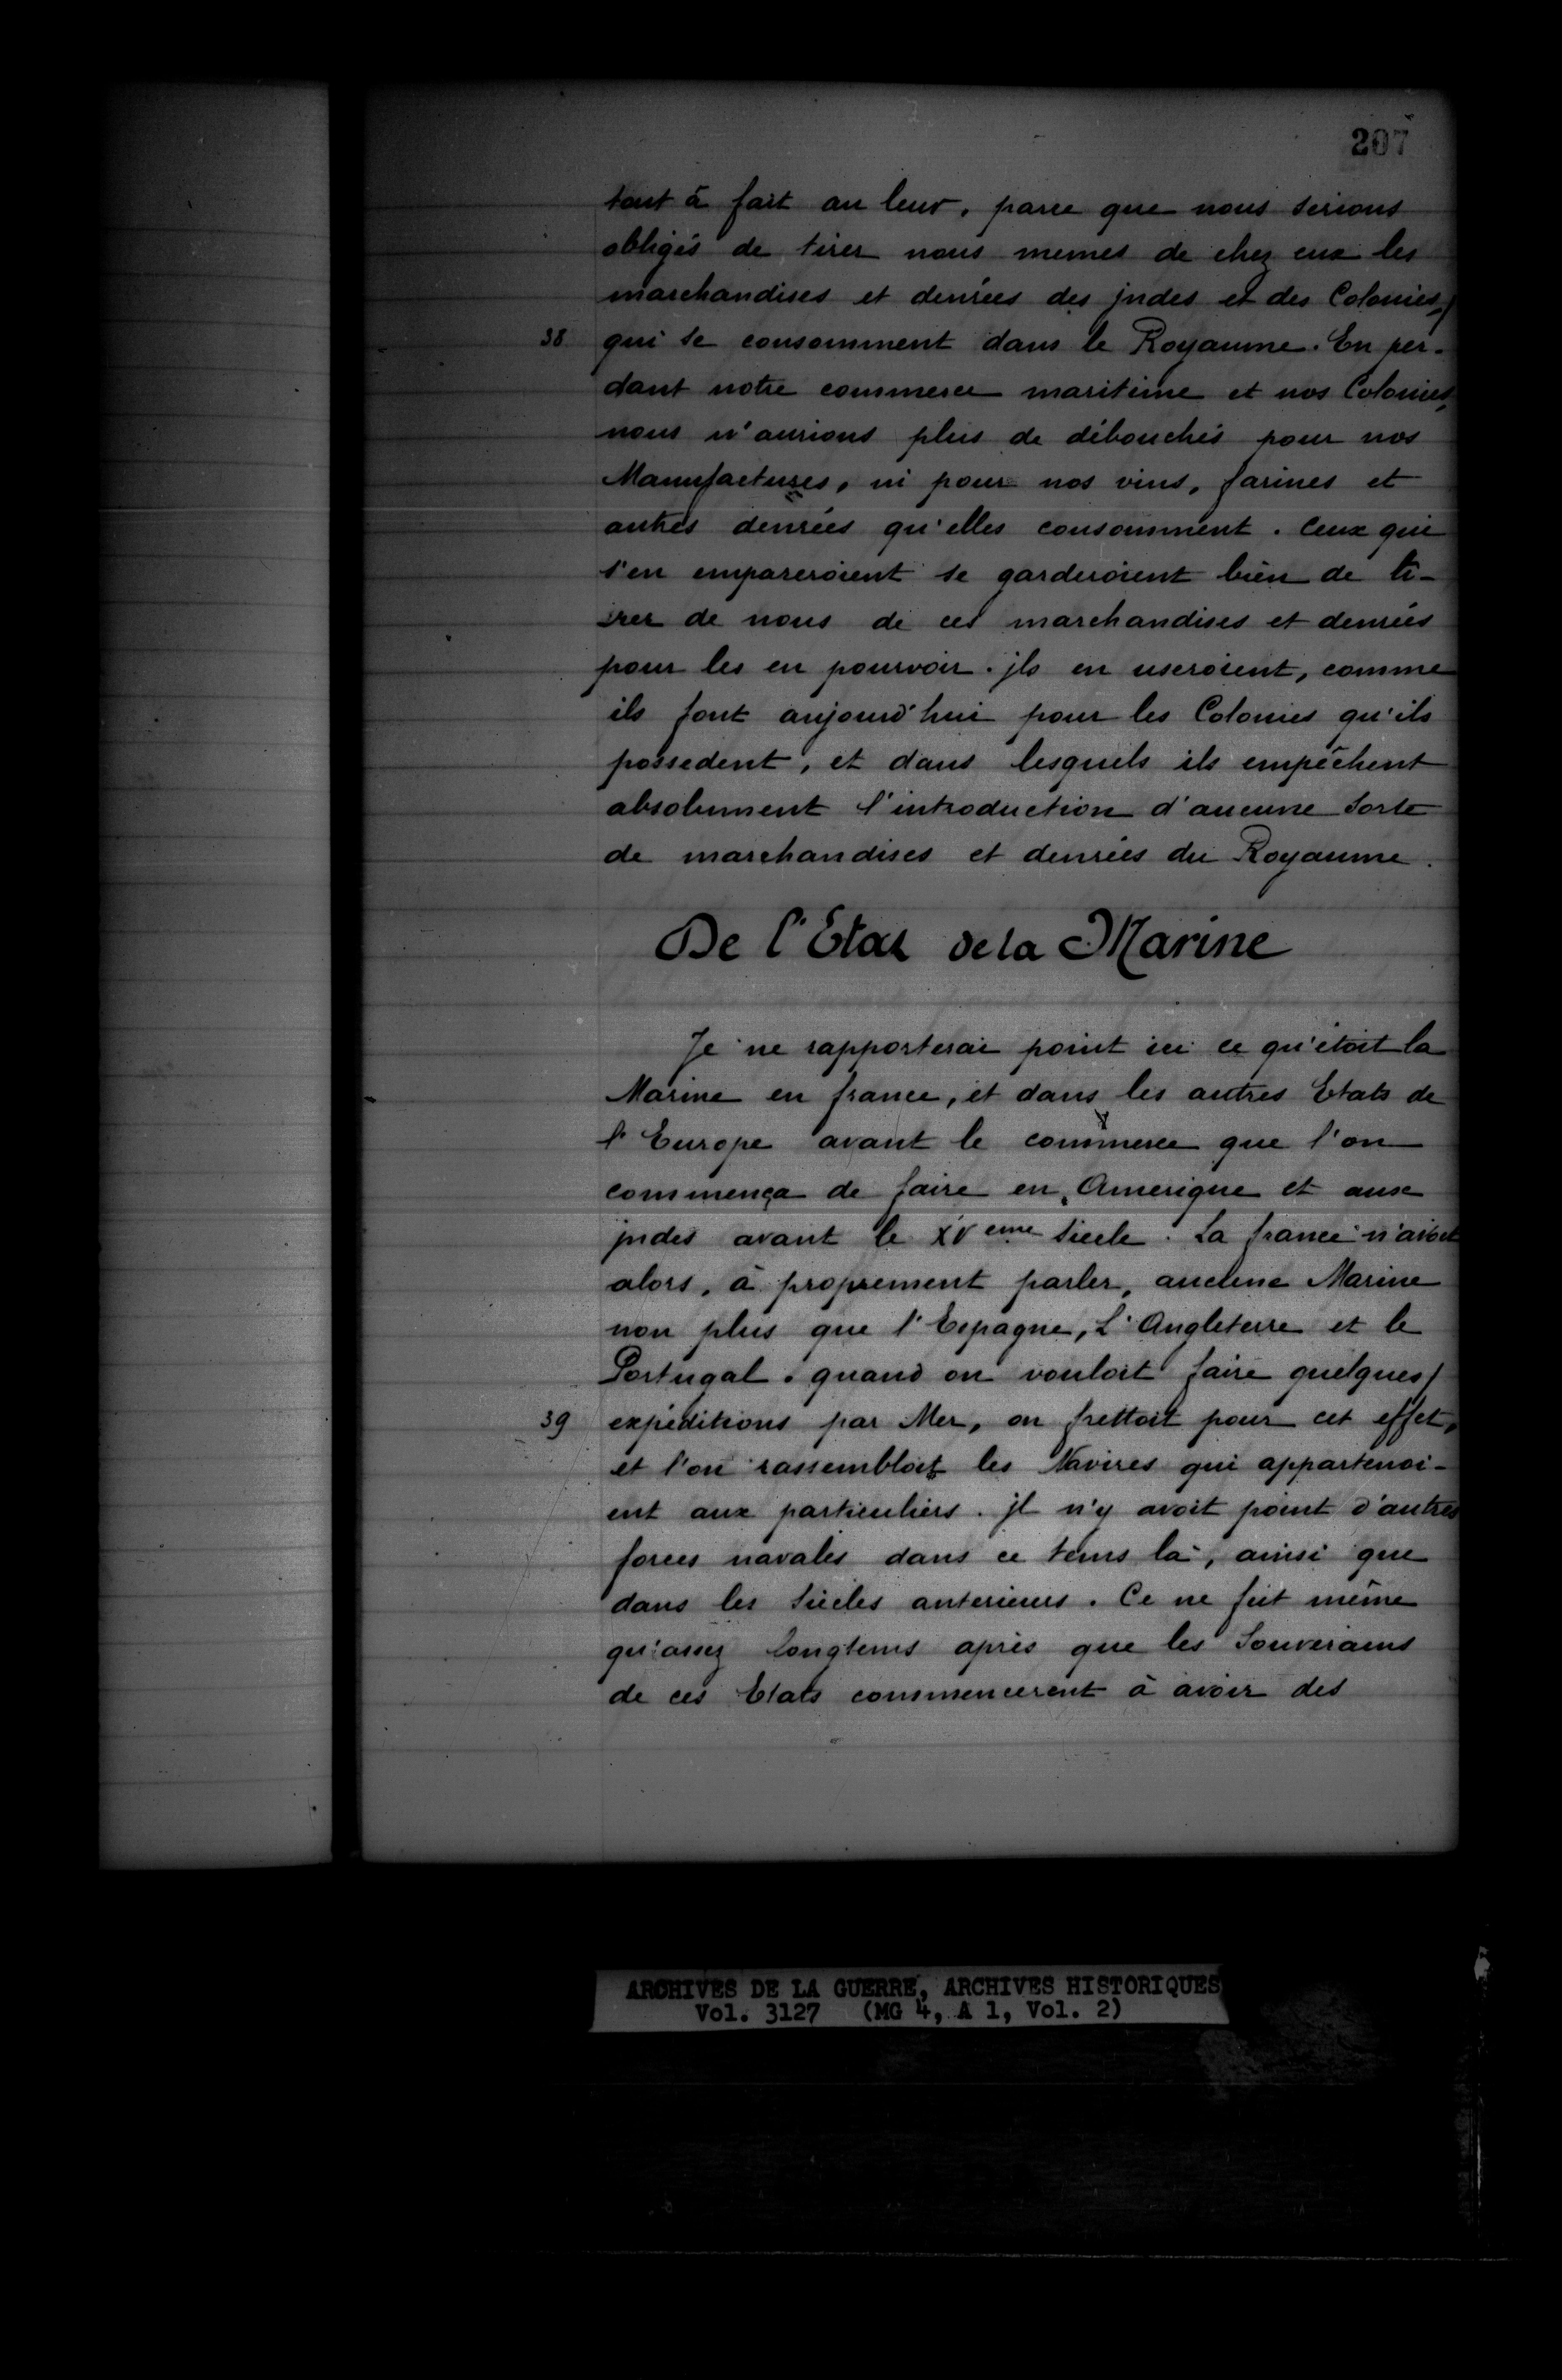 207
tout à fait au leur, parce que nous serions
obligés de tirer nous memes de chez eux les
marchandises et denrées des jndes et des Colonies,/
38 qui se consomment dans le Royaume. En per-
dant notre commerce maritime et nos Colonies,
nous n'aurions plus de débouchés pour nos
Manufactures, ni pour nos vins, farines et
autres denrées qu'elles consomment. Ceux qui
s'en empareroient se garderoient bien de ti-
rer de nous de ces marchandises et denrées
pour les en pourvoir. jls en useroient, comme
ils font aujourd'hui pour les Colonies qu'ils
possedent, et dans lesquels ils empêchent
absolument l'introduction d'aucune sorte
de marchandises et denrées du Royaume.
De l'Etat de la Marine
Je ne rapporterai point ici ce qu'étoit la
Marine en france, et dans les autres Etats de
l'Europe avant le commerce que l'on
commença de faire en Amerique et aux
jndes avant le XVeme siecle. La france n'avoit
alors, à proprement parler, aucune Marine
non plus que l'Espagne, L'Angleterre et le
Portugal. quand on vouloit faire quelques/
39 expéditions par Mer, on frettoit pour cet effet,
et l'on rassembloit les Navires qui appartenoi-
ent aux particuliers. jl n'y avoit point d'autres
forces navales dans ce tems là, ainsi que
dans les siècles anterieurs. Ce ne fut même
qu'assez longtems après que les Souverains
de ces Etats commencerent à avoir des
ARCHIVES DE LA GUERRE, ARCHIVES HISTORIQUES
Vol. 3127 (MG 4, A 1, Vol. 2)